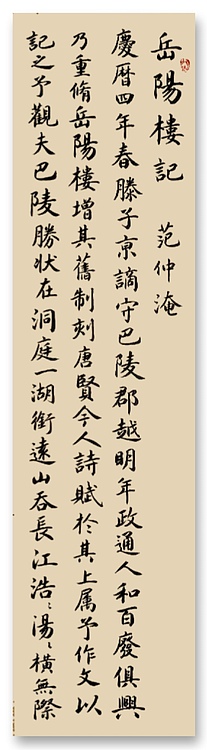 岳陽樓記 范仲淹
慶曆四年春滕子京謫守巴陵郡越明年政通人和百廢俱興
乃重脩岳陽樓增其舊制刻唐賢今人詩賦於其上属予作文以
記之予觀夫巴陵勝狀在洞庭一湖銜遠山吞長江浩〻湯〻橫無際